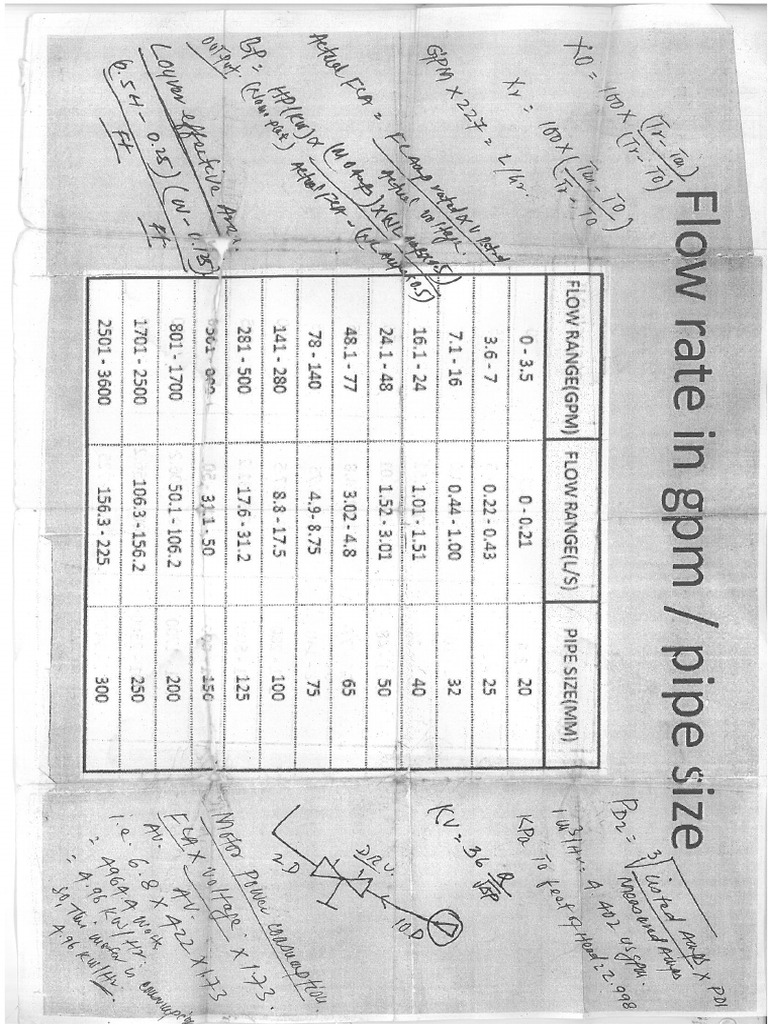 Flow rate in gpm / pipe size
FLOW RANGE(GPM) FLOW RANGE(L/S) PIPE SIZE(MM)
0 - 3.5 0 - 0.21 20
3.6 - 7 0.22 - 0.43 25
7.1 - 16 0.44 - 1.00 32
16.1 - 24 1.01 - 1.51 40
24.1 - 48 1.52 - 3.01 50
48.1 - 77 3.02 - 4.8 65
78 - 140 4.9- 8.75 75
141 - 280 8.8 - 17.5 100
281 - 500 17.6 - 31.2 125
31.1 - 50 150
801 - 1700 50.1 - 106.2 200
1701 - 2500 106.3 -156.2 250
2501 - 3600 156.3 - 225 300
XO = 100X (Tr - Tm) / (Tr - TO)
Xr = 100X (Tm - TO / Tr - TO)
GPM X 227 = L/hr.
Actual FLA = FL Amp rated x V rated
Actual voltage.
BP = HP(KW) x (M O Amps) x (NL Amps x 0.5)
OUTPUT. (Name plate) Actual FLA - (NL Amps x 0.5)
Louver effective Area.
(6.5H - 0.25) (W - 0.125)
Ft Ft
PD2 = 3√ Listed Amps X PD1
Measured Amps
1 m3/Hr = 4.402 usgpm.
KPa To feet of Head = 2.998
KV = 36 Q / √ΔP
DRV.
2D
10D
Motor power consumption.
FLA X Voltage X 1.73.
AV. AV.
i.e. 6.8 X 422 X 1.73
= 4964.4 Watt
= 4.96 KW/Hr.
so, This motor is consuming
4.96 KW/Hr.